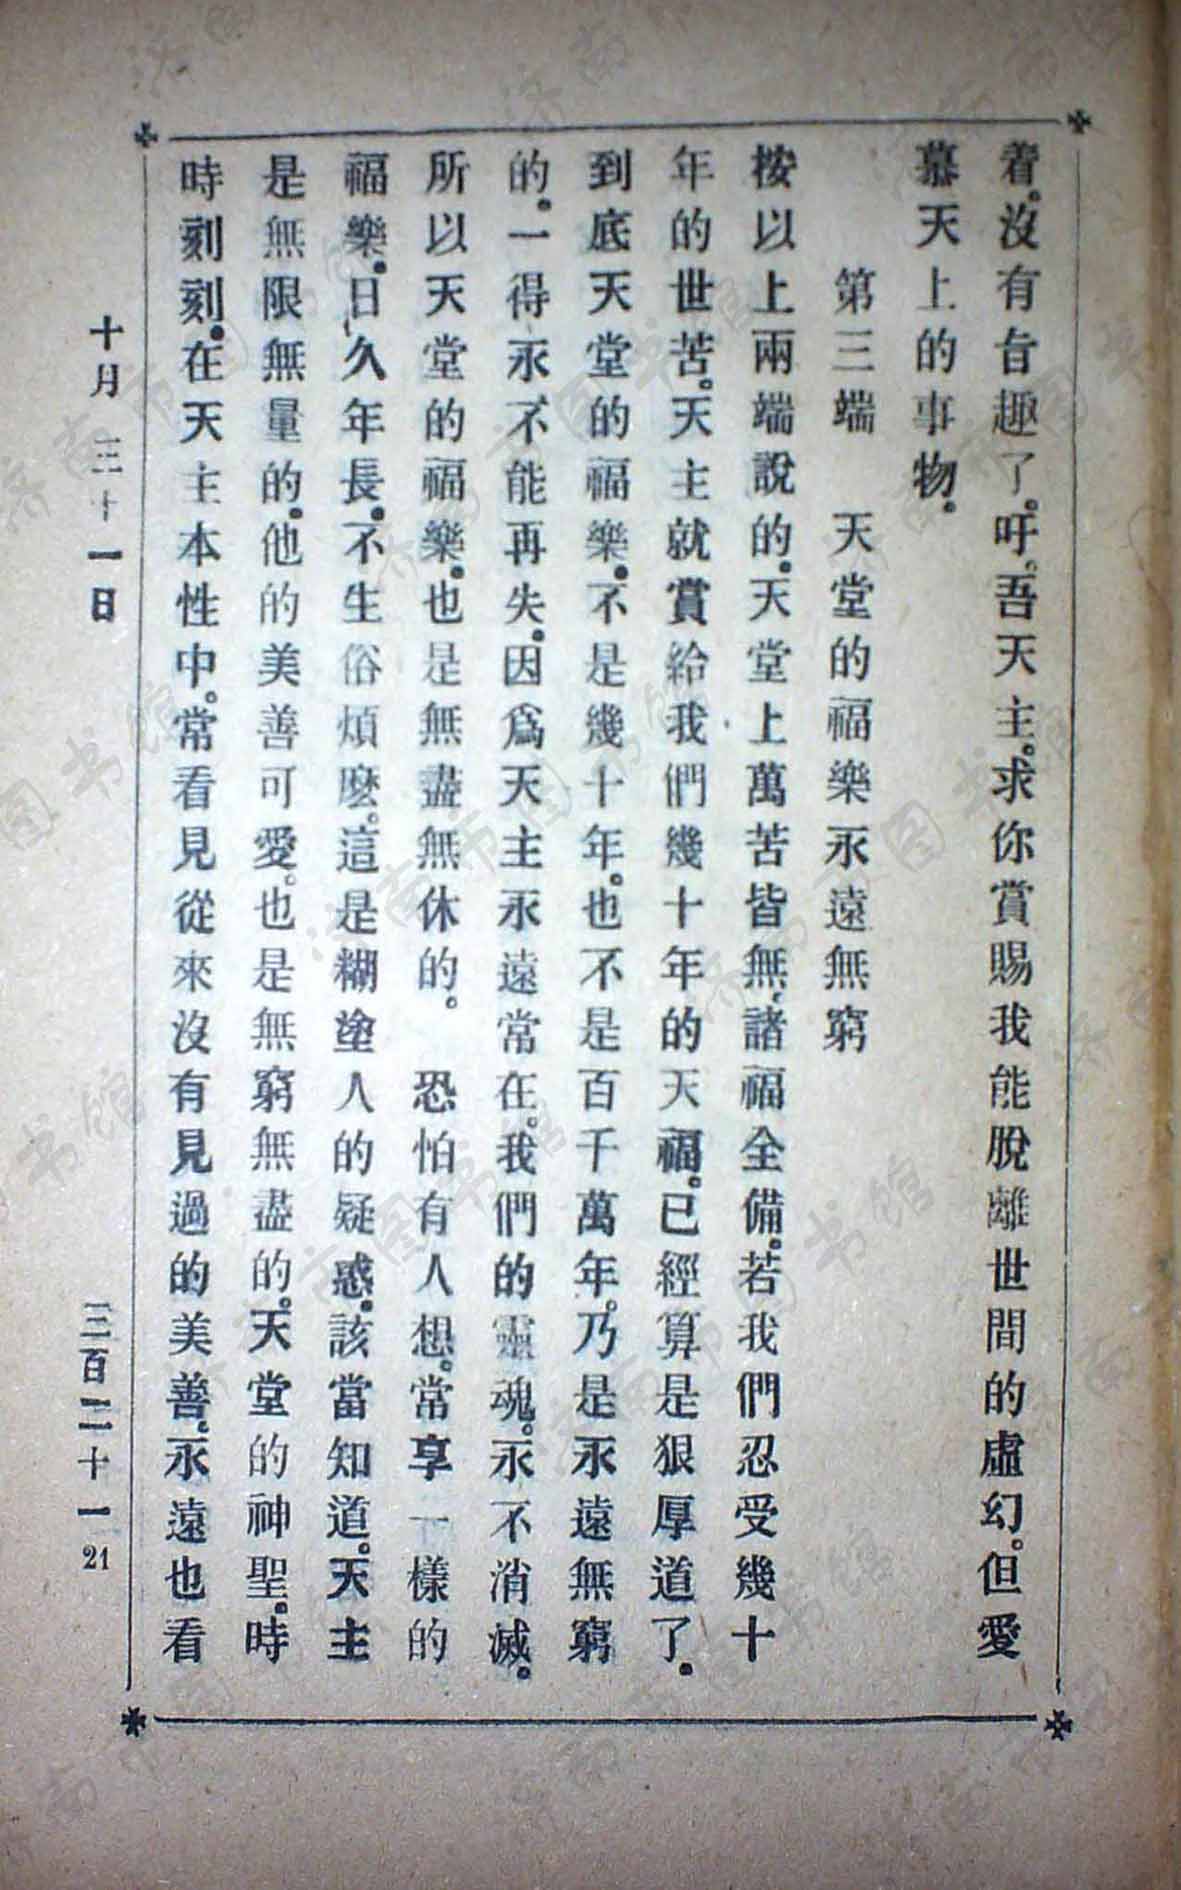 着。沒有旨趣了。吁。吾天主。求你賞賜我能脫離世間的虛幻。但愛
慕天上的事物。
第三端　天堂的福樂永遠無窮
按以上兩端說的。天堂上萬苦皆無、諸福全備。若我們忍受幾十
年的世苦。天主就賞給我們幾十年的天福。已經算是狠厚道了。
到底天堂的福樂。不是幾十年。也不是百千萬年。乃是永遠無窮
的。一得永、不能再失。因爲天主永遠常在。我們的靈魂。永不消滅。
所以天堂的福樂。也是無盡無休的。　恐怕有人想。常享一樣的
福樂。日久年長。不生俗煩麽。這是糊塗人的疑惑。該當知道。天主
是無限無量的。他的美善可愛。也是無窮無盡的。天堂的神聖。時
時刻刻。在天主本性中。常看見從來沒有見過的美善。永遠也看
十月　三十一日　三百二十一 21
济南市图书馆